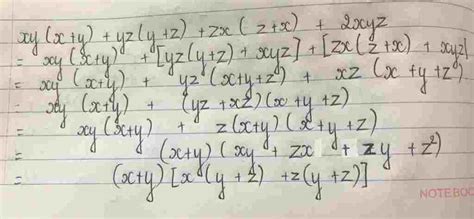 xy (x+y) + yz (y+z) + zx ( z+x) + 2xyz
= xy (x+y) + [yz(y+z) + xyz] + [zx(z+x) + xyz]
= xy (x+y) + yz (x+y+z) + xz (x+y+z)
= xy (x+y) + (yz + xz) (x+y+z)
= xy (x+y) + z(x+y) (x+y+z)
= (x+y) ( xy + zx + zy + z²)
= (x+y) [x (y+z) + z(y+z)]
NOTEBOO